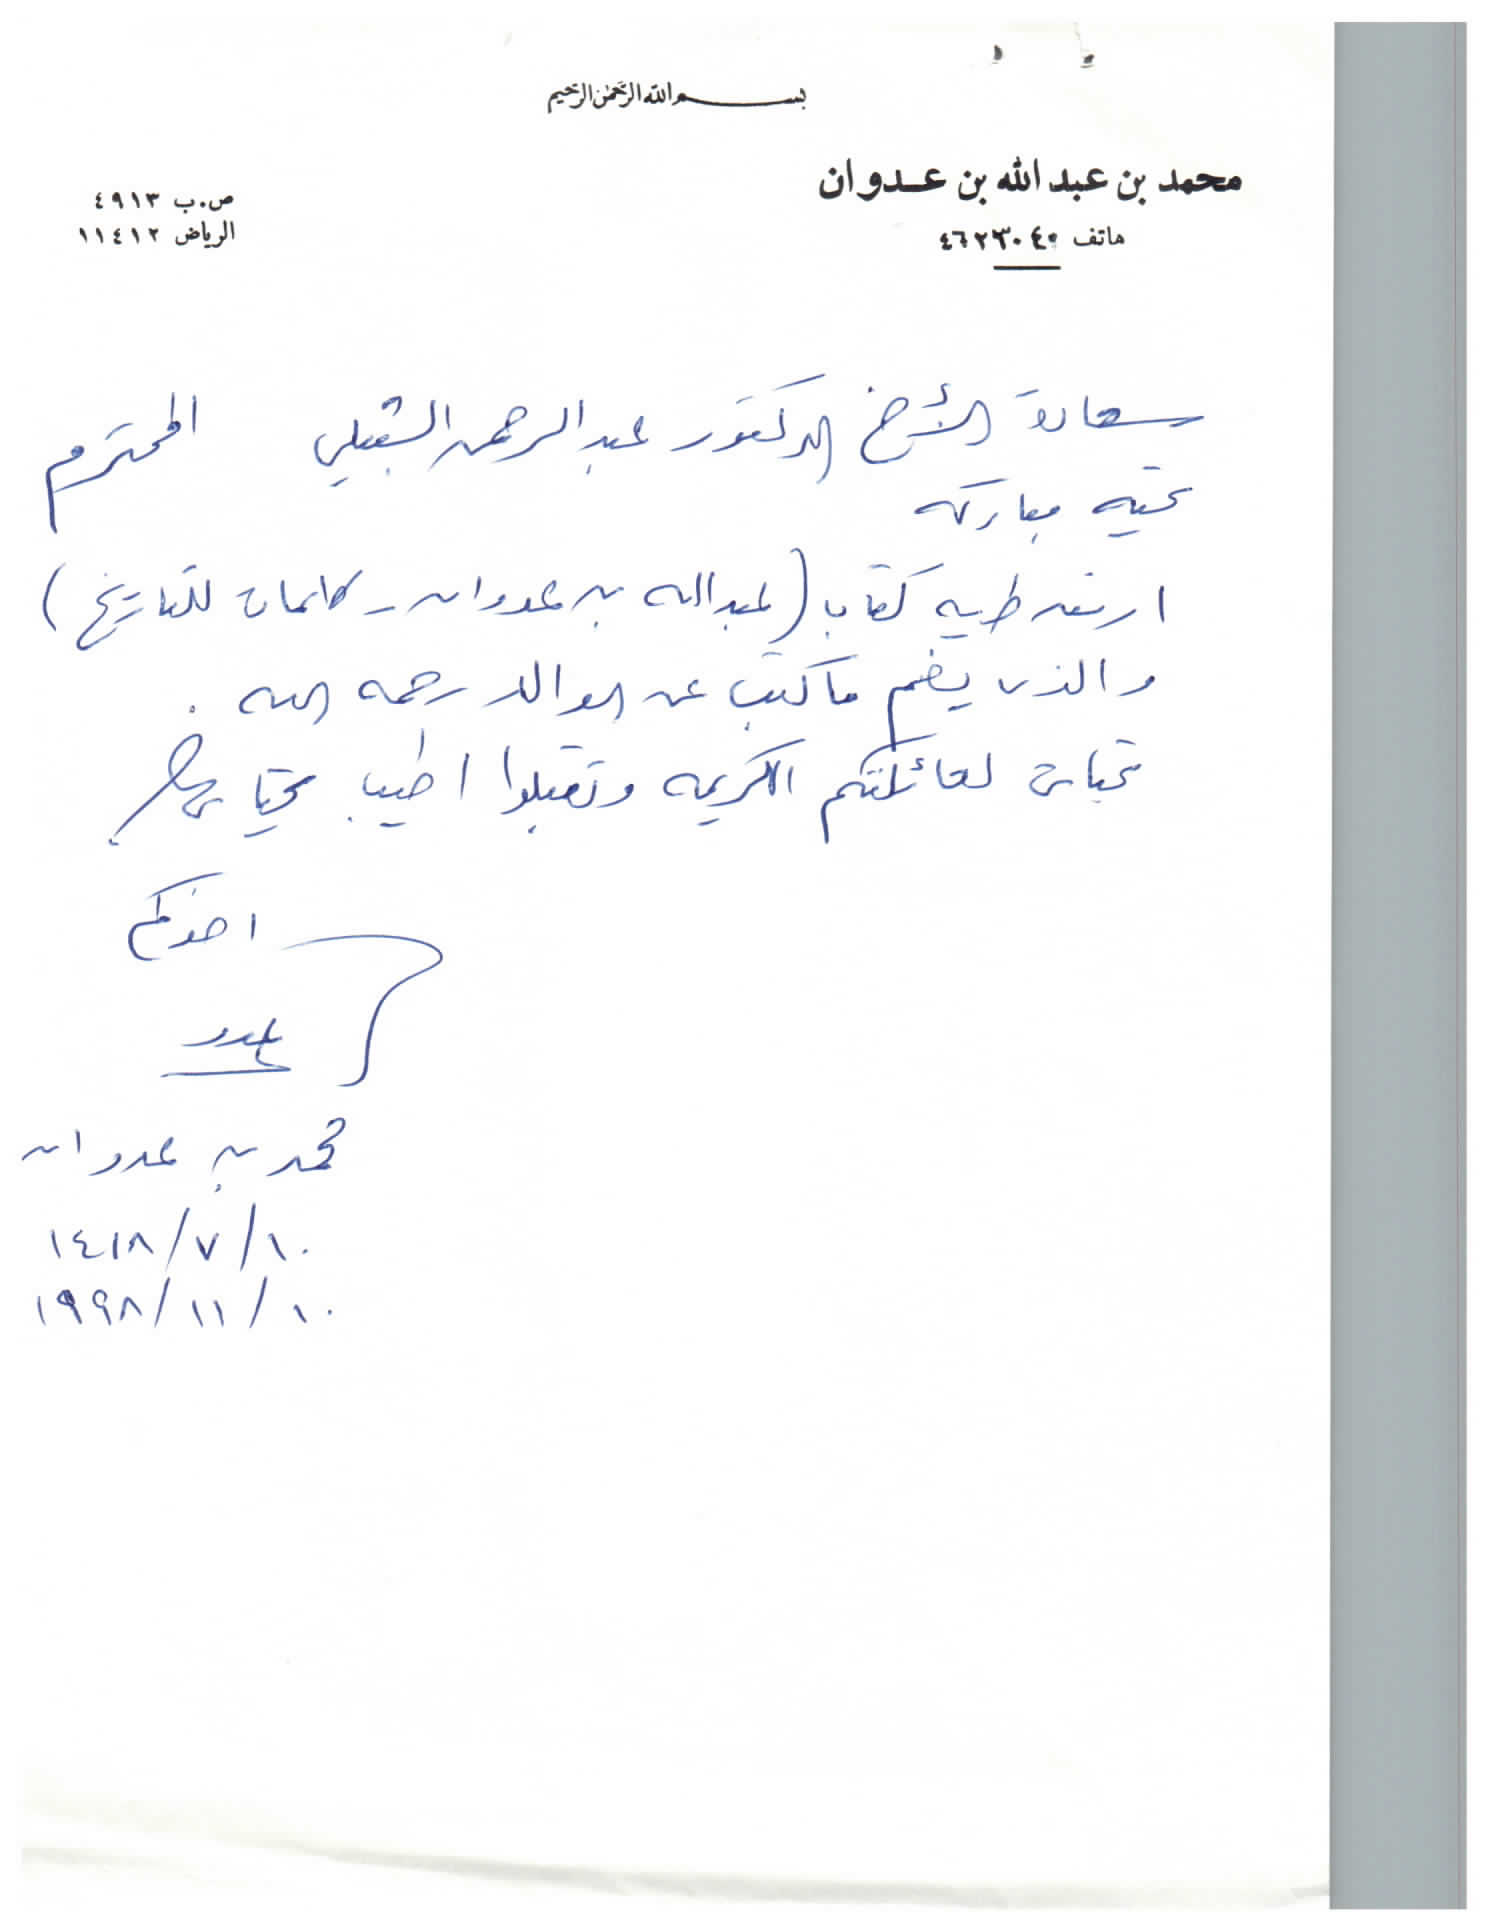 بسم الله الرحمن الرحيم
محمد بن عبد الله بن عدوان
هاتف ٤٦٢٣٠٤٠
ص.ب ٤٩١٣
الرياض ١١٤١٢
سعادة الأخ الدكتور عبدالرحمن الشبيلي المحترم
تحيه مباركه
ارفق طيه كتاب (عبدالله بن عدوان - كلمات للتاريخ)
والذي يضم ما كتب عن الوالد رحمه الله .
تحياتي لعائلتكم الكريمه وتقبلوا اطيب تحياتي
اخوكم
محمد بن عدوان
١٤١٨/٧/١٠
١٩٩٨/١١/١٠